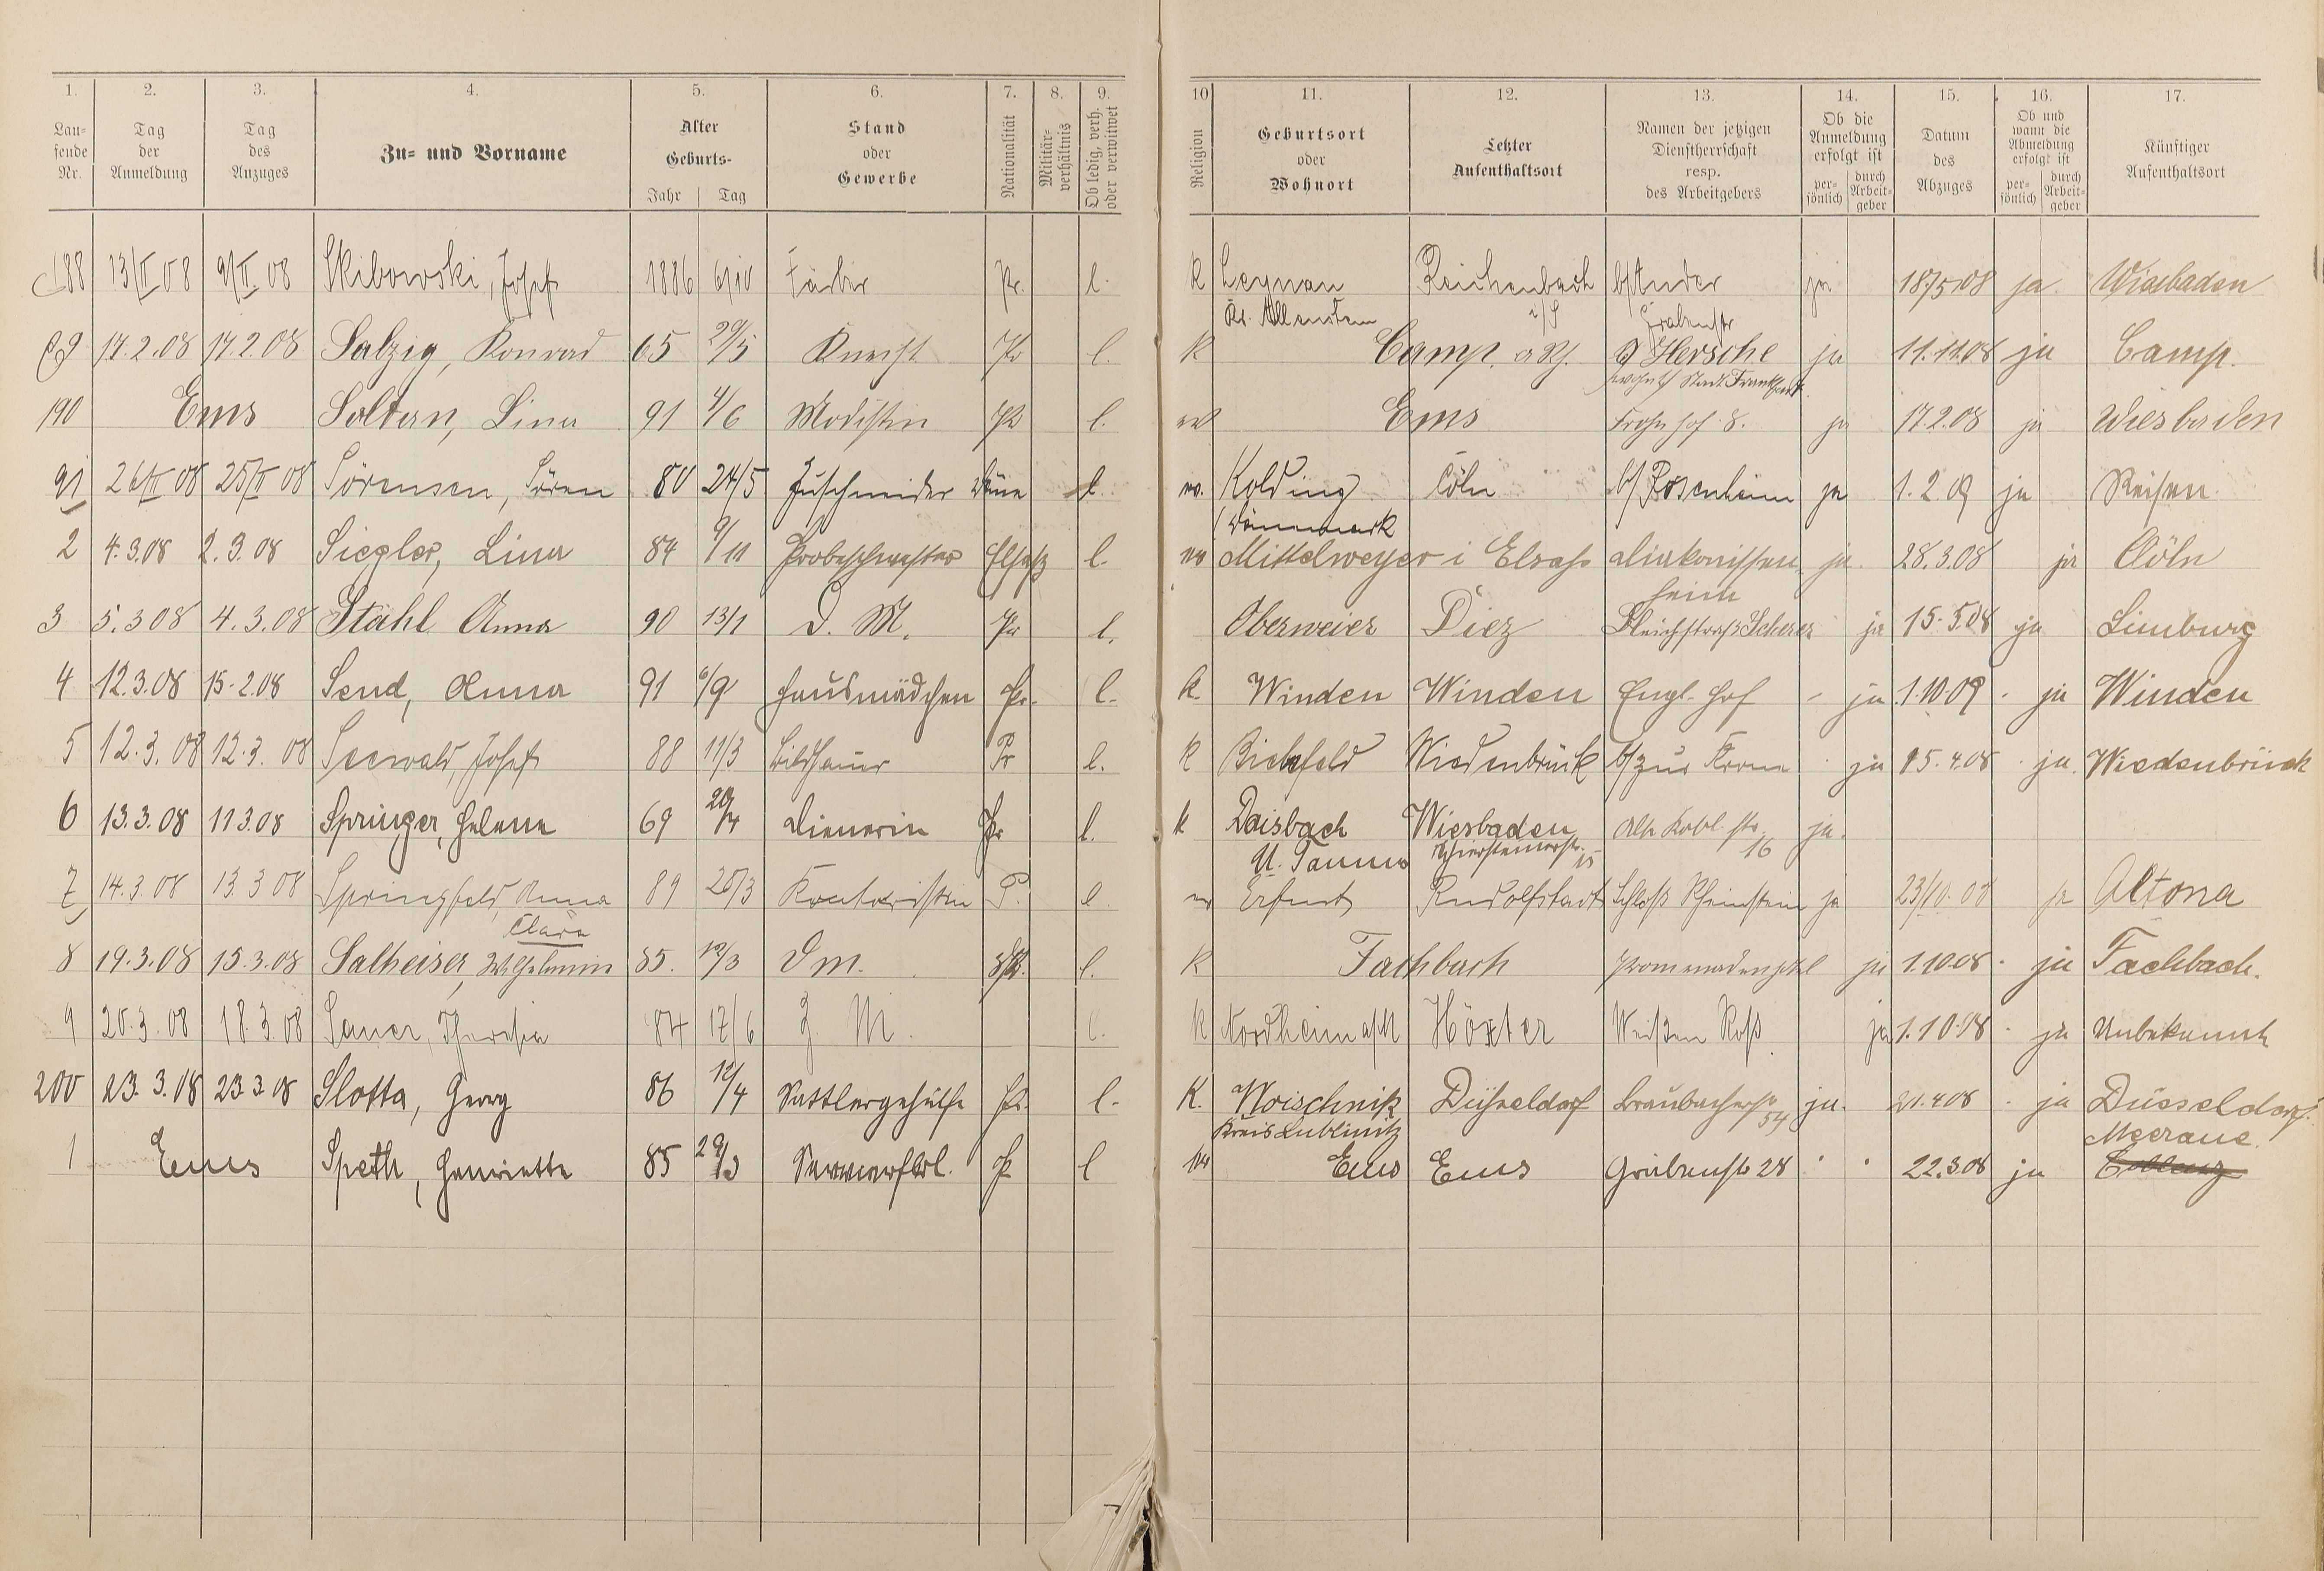 1. 2. 3. 4. 5. 6. 7. 8. 9. 10 11. 12. 13. 14. 15. 16. 17.
Lau-
fende
Nr.
Tag
der
Anmeldung
Tag
des
Anzuges
Zu- und Vorname
Alter
Geburts-
Jahr Tag
Stand
oder
Gewerbe
Nationalität
Militär-
verhältnis
Ob ledig, verh.
oder verwitwet
Religion
Geburtsort
oder
Wohnort
Letzter
Aufenthaltsort
Namen der jetzigen
Dienstherrschaft
resp.
des Arbeitgebers
Ob die
Anmeldung
erfolgt ist
per-
sönlich
durch
Arbeit-
geber
Datum
des
Abzuges
Ob und
wann die
Abmeldung
erfolgt ist
per-
sönlich
durch
Arbeit-
geber
Künftiger
Aufenthaltsort
188 13/II 08 9/II 08 Skibowski, Josef 1886 6/10 Färber Pr. l. K Leynau Reichenbach b/Ander ja 18/5 08 ja Wiesbaden
Kr. Allenstein i/S Grabenstr
89 17.2.08 17.2.08 Salzig, Konrad 65 29/5 Knecht Pr l. K Camp. a Rh. Hersche ja 11.11.08 ja Camp.
wohnt Stadt Frankfurt
190 Ems Soltern, Lina 91 4/6 Modistin Pr l. ev Ems Frohnhof 8. ja 17.2.08 ja Wiesbaden
91 26/II 08 25/II 08 Sörensen, Sören 80 24/5 Zuschneider Däne l. ev. Kolding Cöln b/Rosenheim ja 1.2.09 ja Reisen
Dänemark
2 4.3.08 2.3.08 Siegler, Lina 84 9/11 Probeschwester Elsaß l. ev Mittelweyer i Elsass Diakonissen ja 28.3.08 ja Cöln
heim
3 5.3 08 4.3.08 Stahl Anna 90 13/1 D. M. Pr l. Oberweier Diez Bleichstraß Scherer ja 15.5.08 ja Limburg
4 12.3.08 15.2.08 Send, Anna 91 6/9 Hausmädchen Pr. l. K. Winden Winden Engl. Hof - ja 1.10.09 . ja Winden
5 12.3.08 12.3.08 Seewald, Josef 88 11/3 Bildhauer Pr l. K Bielefeld Wiedenbrück b/zur Krone ja 15.4.08 . ja Wiedenbrück
6 13.3.08 11 3.08 Springer, Helene 69 20/4 Dienerin Pr l. k Daisbach Wiesbaden Alte Kobl str ja.
U. Taunus Schiersteinerstr. 15 16
7 14.3.08 13.3 08 Springfeld, Anna 89 20/3 Kontoristin P. l. ev Erfurt Rudolfstadt Schloß Rheinstein ja 23/10.08 ja Altona
Clara
8 19.3.08 15.3.08 Salheiser, Wilhelmin 85. 10/3 Dm. Pr. l. K Fachbach Promenadenhtl ja 1.10.08 . ja Fachbach.
9 20.3.08 18.3.08 Sauer, Theresia 84 17/6 Z M. l. K Nordheim a/M Höxter Weißen Roß ja 1.10.08 . ja Unbekannt
200 23.3.08 23 3 08 Slotta, Georg 86 12/4 Sattlergehülfe Pr. l. K. Woischnik Düsseldorf Braubacherstr 54 ja. 21.4.08 . ja Düsseldorf.
Kreis Lublinitz Meerane
1 Ems Speth, Henriette 85 29/3 Servierfrl. Pr l ev Ems Ems Grabenstr 28 . . 22.3.08 ja Coblenz